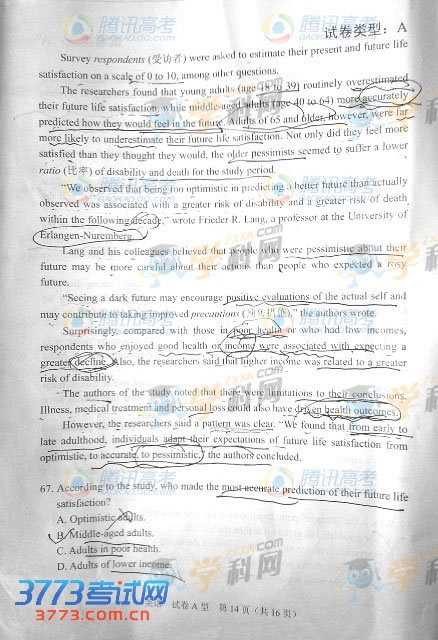 腾讯高考
GAOKAO.QQ.COM
腾讯高考
试卷类型：A
Survey respondents (受访者) were asked to estimate their present and future life
satisfaction on a scale of 0 to 10, among other questions.
The researchers found that young adults (age 18 to 39) routinely overestimated
their future life satisfaction, while middle-aged adults (age 40 to 64) more accurately
predicted how they would feel in the future. Adults of 65 and older, however, were far
more likely to underestimate their future life satisfaction. Not only did they feel more
satisfied than they thought they would, the older pessimists seemed to suffer a lower
ratio (比率) of disability and death for the study period.
"We observed that being too optimistic in predicting a better future than actually
observed was associated with a greater risk of disability and a greater risk of death
within the following decade," wrote Frieder R. Lang, a professor at the University of
Erlangen-Nuremberg.
Lang and his colleagues believed that people who were pessimistic about their
future may be more careful about their actions than people who expected a rosy
future.
"Seeing a dark future may encourage positive evaluations of the actual self and
may contribute to taking improved precautions (预防措施)," the authors wrote.
Surprisingly, compared with those in poor health or who had low incomes,
respondents who enjoyed good health or income were associated with expecting a
greater decline. Also, the researchers said that higher income was related to a greater
risk of disability.
The authors of the study noted that there were limitations to their conclusions.
Illness, medical treatment and personal loss could also have driven health outcomes.
However, the researchers said a pattern was clear. "We found that from early to
late adulthood, individuals adapt their expectations of future life satisfaction from
optimistic, to accurate, to pessimistic," the authors concluded.
腾讯高考
67. According to the study, who made the most accurate prediction of their future life
satisfaction?
A. Optimistic adults.
B. Middle-aged adults.
C. Adults in poor health.
D. Adults of lower income.
学科网
3773考试网
3773.com.cn
试卷 A 型 第 14 页 (共 16 页)